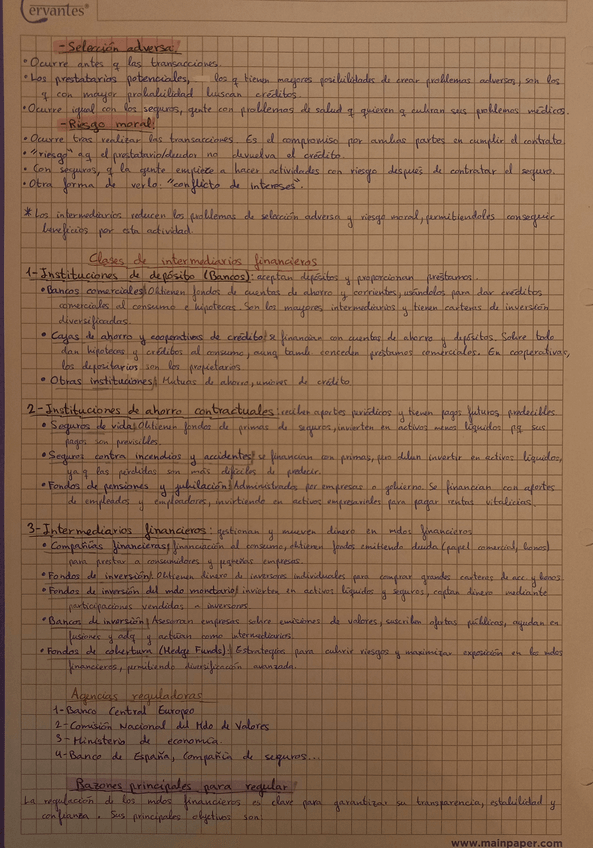 Cervantes®
- Selección adversa:
• Ocurre antes q las transacciones.
• Los prestatarios potenciales, los q tienen mayores posibilidades de crear problemas adversos, son los
q con mayor probabilidad buscan créditos.
• Ocurre igual con los seguros, gente con problemas de salud q quieren q cubran sus problemas médicos.
- Riesgo moral:
• Ocurre tras realizar las transacciones. Es el compromiso por ambas partes en cumplir el contrato.
• "riesgo" a q el prestatario/deudor no devuelva el crédito.
• Con seguros, q la gente empiece a hacer actividades con riesgo después de contratar el seguro.
• Otra forma de verlo: "conflicto de intereses".
* Los intermediarios reducen los problemas de selección adversa y riesgo moral, permitiéndoles conseguir
beneficios por esta actividad.
Clases de intermediarios financieros
1- Instituciones de depósito (Bancos): aceptan depósitos y proporcionan préstamos.
• Bancos comerciales| Obtienen fondos de cuentas de ahorro y corrientes, usándolos para dar créditos
comerciales al consumo e hipotecas. Son los mayores intermediarios y tienen carteras de inversión
diversificadas.
• Cajas de ahorro y cooperativas de crédito| se financian con cuentas de ahorro y depósitos. Sobre todo
dan hipotecas y créditos al consumo, aunq tamb conceden préstamos comerciales. En cooperativas,
los depositarios son los propietarios.
• Otras instituciones| Mutuas de ahorro, uniones de crédito
2- Instituciones de ahorro contractuales: reciben aportes periódicos y tienen pagos futuros predecibles.
• Seguros de vida| Obtienen fondos de primas de seguros, invierten en activos menos líquidos pq sus
pagos son previsibles.
• Seguros contra incendios y accidentes| se financian con primas, pero deben invertir en activos líquidos,
ya q las pérdidas son más difíciles de predecir.
• Fondos de pensiones y jubilación| Administrados por empresas o gobierno. Se financian con aportes
de empleados y empleadores, invirtiendo en activos empresariales para pagar rentas vitalicias.
3- Intermediarios financieros: gestionan y mueven dinero en mdos financieros
• Compañías financieras| financiación al consumo, obtienen fondos emitiendo deuda (papel comercial, bonos)
para prestar a consumidores y pequeñas empresas.
• Fondos de inversión| Obtienen dinero de inversores individuales para comprar grandes carteras de acc y bonos.
• Fondos de inversión del mdo monetario| invierten en activos líquidos y seguros, captan dinero mediante
participaciones vendidas a inversores.
• Bancos de inversión| Asesoran empresas sobre emisiones de valores, suscriben ofertas públicas, ayudan en
fusiones y adq y actúan como intermediarios.
• Fondos de cobertura (Hedge Funds)| Estrategias para cubrir riesgos y maximizar exposición en los mdos
financieros, permitiendo diversificación avanzada.
Agencias reguladoras
1- Banco Central Europeo
2- Comisión Nacional del Mdo de Valores
3- Ministerio de economía
4- Banco de España, Compañía de seguros...
Razones principales para regular
La regulación de los mdos financieros es clave para garantizar su transparencia, estabilidad y
confianza. Sus principales objetivos son:
www.mainpaper.com